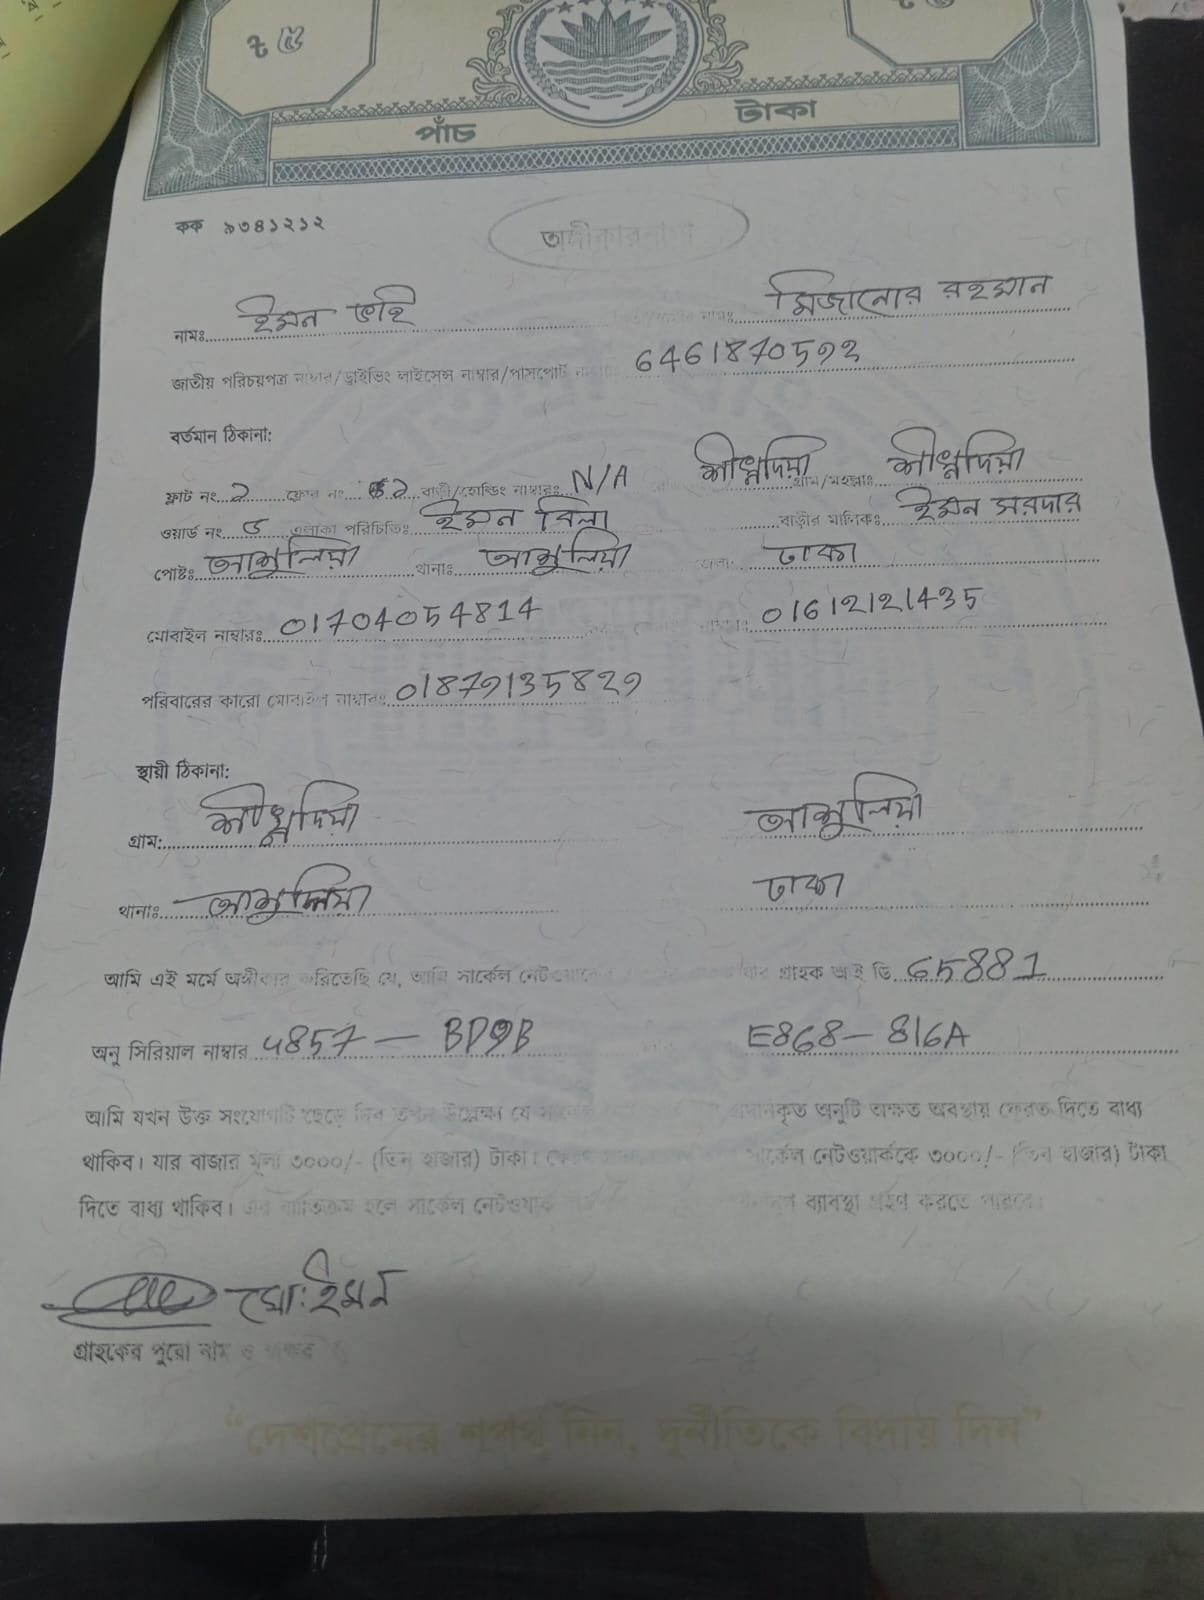 ৳ ৫
পাঁচ টাকা
কক ৯৩৪১২১২
অঙ্গীকারনামা
নামঃ ইমন ভাই নামঃ মিজানোর রহমান
জাতীয় পরিচয়পত্র নাম্বার/ড্রাইভিং লাইসেন্স নাম্বার/পাসপোর্ট 6461870592
বর্তমান ঠিকানা:
ফ্লাট নং 2 ফ্লোর নং বাড়ী/হোল্ডিং নাম্বারঃ N/A গ্রাম/মহল্লাঃ
ওয়ার্ড নং এলাকা পরিচিতিঃ ইমন ভিলা বাড়ীর মালিকঃ ইমন সরদার
পোষ্টঃ আশুলিয়া থানাঃ আশুলিয়া জেলা: ঢাকা
মোবাইল নাম্বারঃ 01704054814 01612121435
পরিবারের কারো মোবাইল নাম্বারঃ 01879135829
স্থায়ী ঠিকানা:
গ্রাম: আশুলিয়া
থানাঃ আশুলিয়া ঢাকা
আমি এই মর্মে অঙ্গীকার করিতেছি যে, আমি সার্কেল নেটওয়ার্কের যার গ্রাহক আই ডি 65881
অনু সিরিয়াল নাম্বার 4857 – BD9B E868 – 816A
আমি যখন উক্ত সংযোগটি ছেড়ে দিব তখন উল্লেক্ষ্য যে সার্কেল প্রদানকৃত অনুটি অক্ষত অবস্থায় ফেরত দিতে বাধ্য
থাকিব। যার বাজার মূল্য ৩০০০/- (তিন হাজার) টাকা। সার্কেল নেটওয়ার্ককে ৩০০০/- (তিন হাজার) টাকা
দিতে বাধ্য থাকিব। এর ব্যতিক্রম হলে সার্কেল নেটওয়ার্ক ব্যবস্থা গ্রহণ করতে পারবে।
মো: ইমন
গ্রাহকের পুরো নাম ও স্বাক্ষর
“দেশপ্রেমের শপথ নিন, দুর্নীতিকে বিদায় দিন”